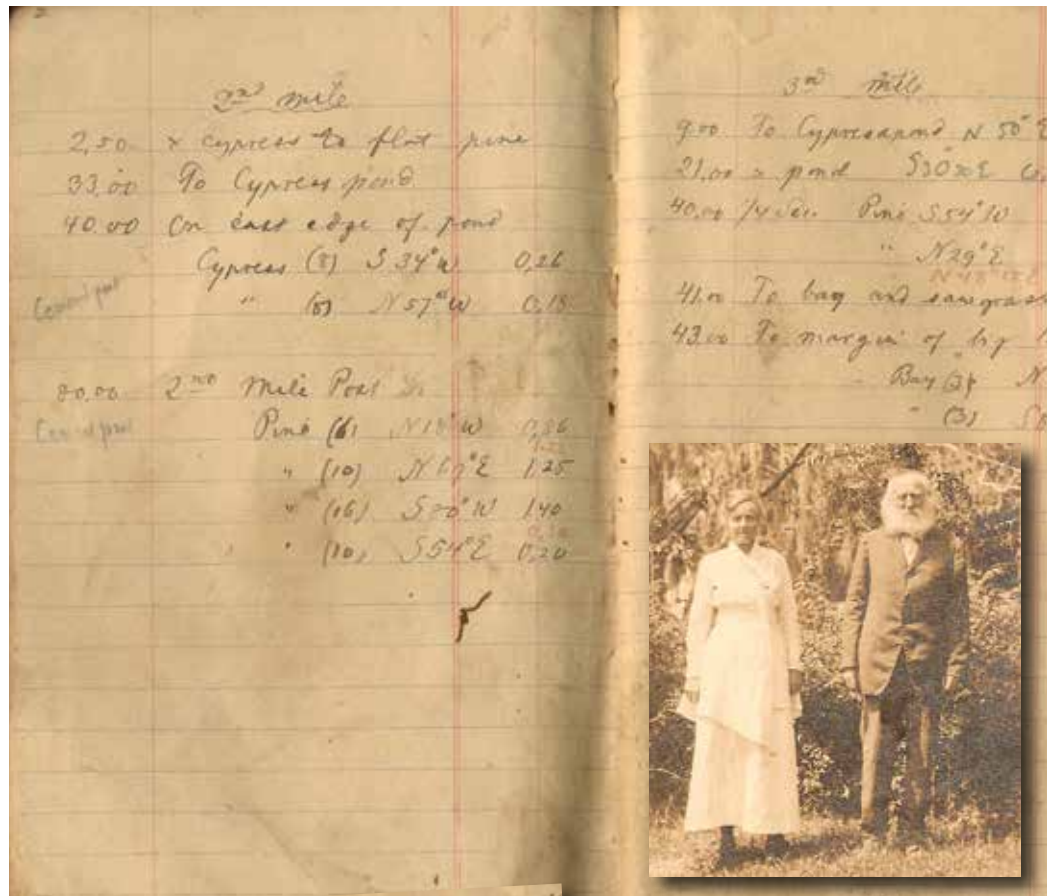 2nd mile
2,50 x cypress to flat pine
33,00 To Cypress pond
40.00 on east edge of pond
Cypress (8) S 34° W 0,26
" (8) N 57° W 0,18
80.00 2nd Mile Post
Pine (6) N 18° W
" (10) N 67° E 1,25
" (16) W 1,40
" (10) S 54° E 0,20
3rd mile
9.00 To Cypress pond N 50° E
21,00 x pond S 30° E
40,00 1/4 Sec. Pine S 54° W
" N 29° E
41.00 To bay and sawgrass
43.00 To margin of
Bay (3) N
" (3) S